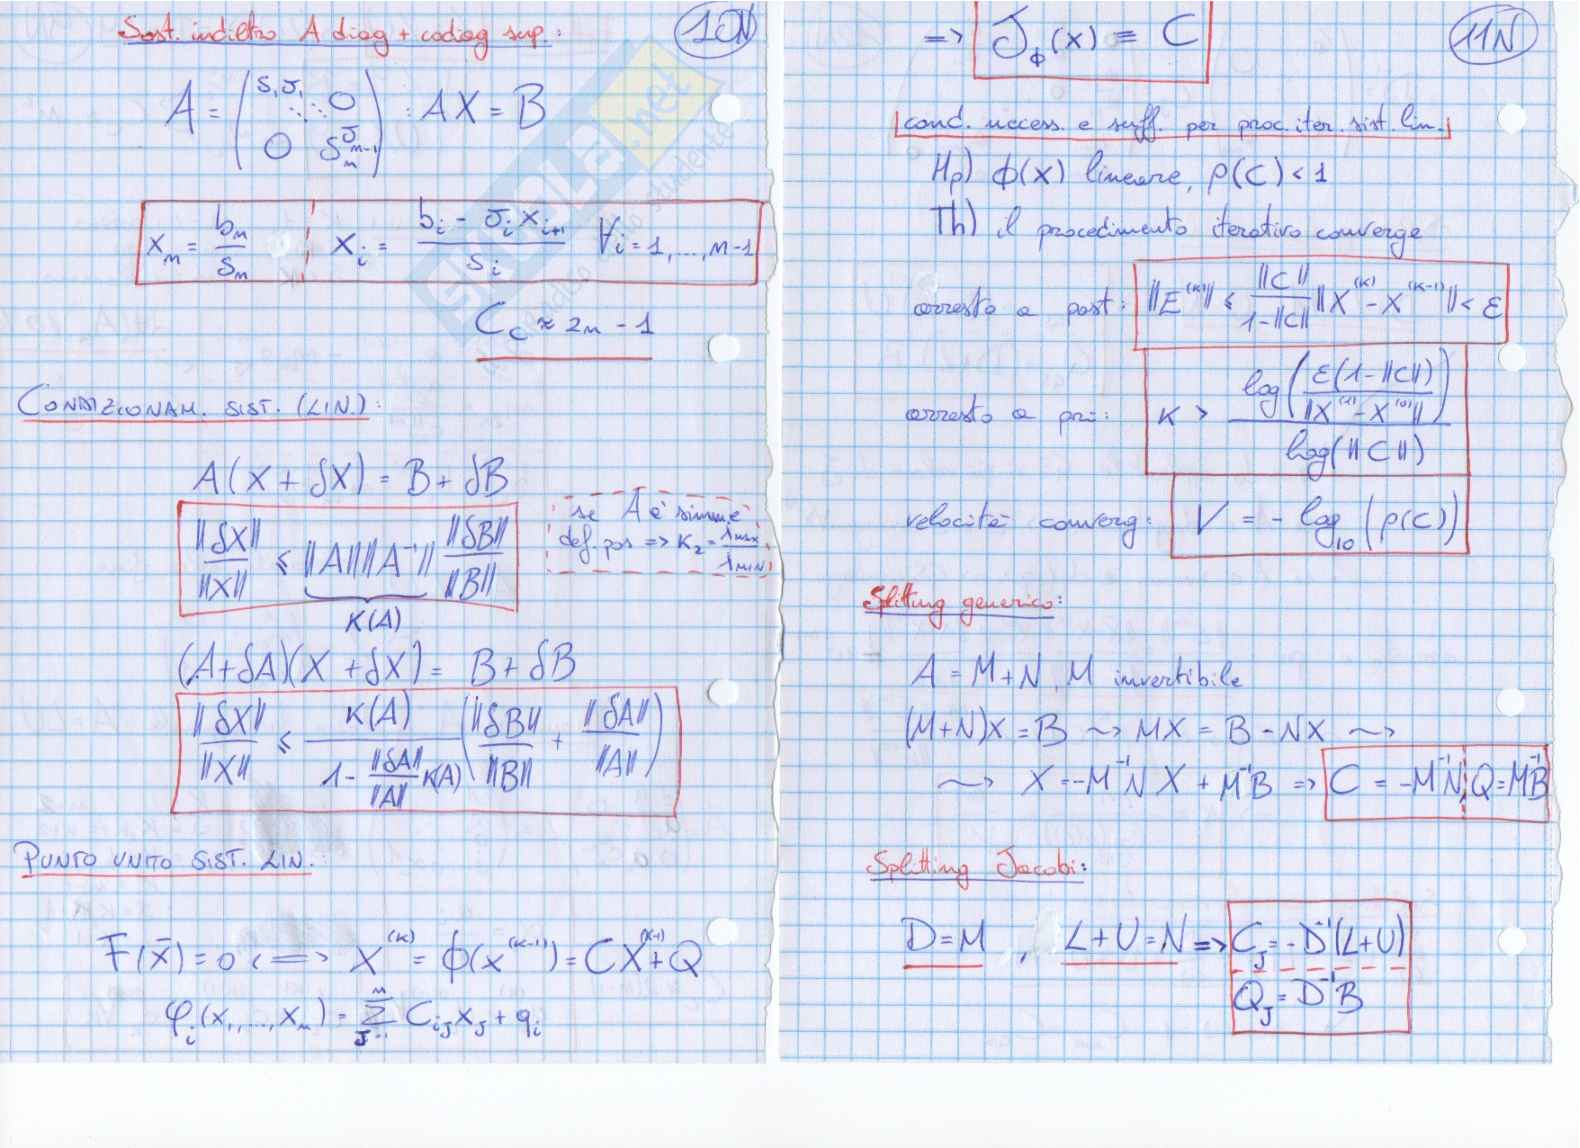 Sost. indietro A diag + codiag sup.:
10N
A = ( s₁ J₁ ⋱ ⋱ 0 0 sₙ Jₙ₋₁ ) : AX = B
xₙ = bₙ/sₙ ¦ xᵢ = (bᵢ - Jᵢ xᵢ₊₁)/sᵢ ∀i = 1,...,n-1
C_c ≈ 2n - 1
CONDIZIONAM. SIST. (LIN.):
A(X + δX) = B + δB
||δX||/||X|| ≤ ||A|| ||A⁻¹|| ||δB||/||B||
K(A)
se A è simm. e
def. pos => K₂ = λmax/λMIN
(A+δA)(X + δX) = B + δB
||δX||/||X|| ≤ K(A)/(1 - ||δA||/||A|| K(A)) (||δB||/||B|| + ||δA||/||A||)
PUNTO UNITO SIST. LIN.:
F(x̄) = 0 <=> X^(K) = ϕ(x^(K-1)) = CX^(K-1) + Q
φᵢ(x₁,...,xₙ) = Σⁿ_{J=1} C_{iJ} x_J + qᵢ
=> J_ϕ(x) ≡ C
11N
cond. necess. e suff. per proc. iter. sist. lin.
Hp) ϕ(X) lineare, ρ(C) < 1
Th) il procedimento iterativo converge
arresto a post: ||E^(K)|| ≤ ||C||/(1-||C||) ||X^(K) - X^(K-1)|| < ε
arresto a pri: K > log( ε(1-||C||)/||X^(1) - X^(0)|| ) / log(||C||)
velocità converg: V = - log₁₀(ρ(C))
Splitting generico:
A = M+N, M invertibile
(M+N)X = B ⤳ MX = B - NX ⤳
⤳ X = -M⁻¹N X + M⁻¹B => C = -M⁻¹N ¦ Q = M⁻¹B
Splitting Jacobi:
D = M , L+U = N => C_J = -D⁻¹(L+U)
Q_J = D⁻¹B